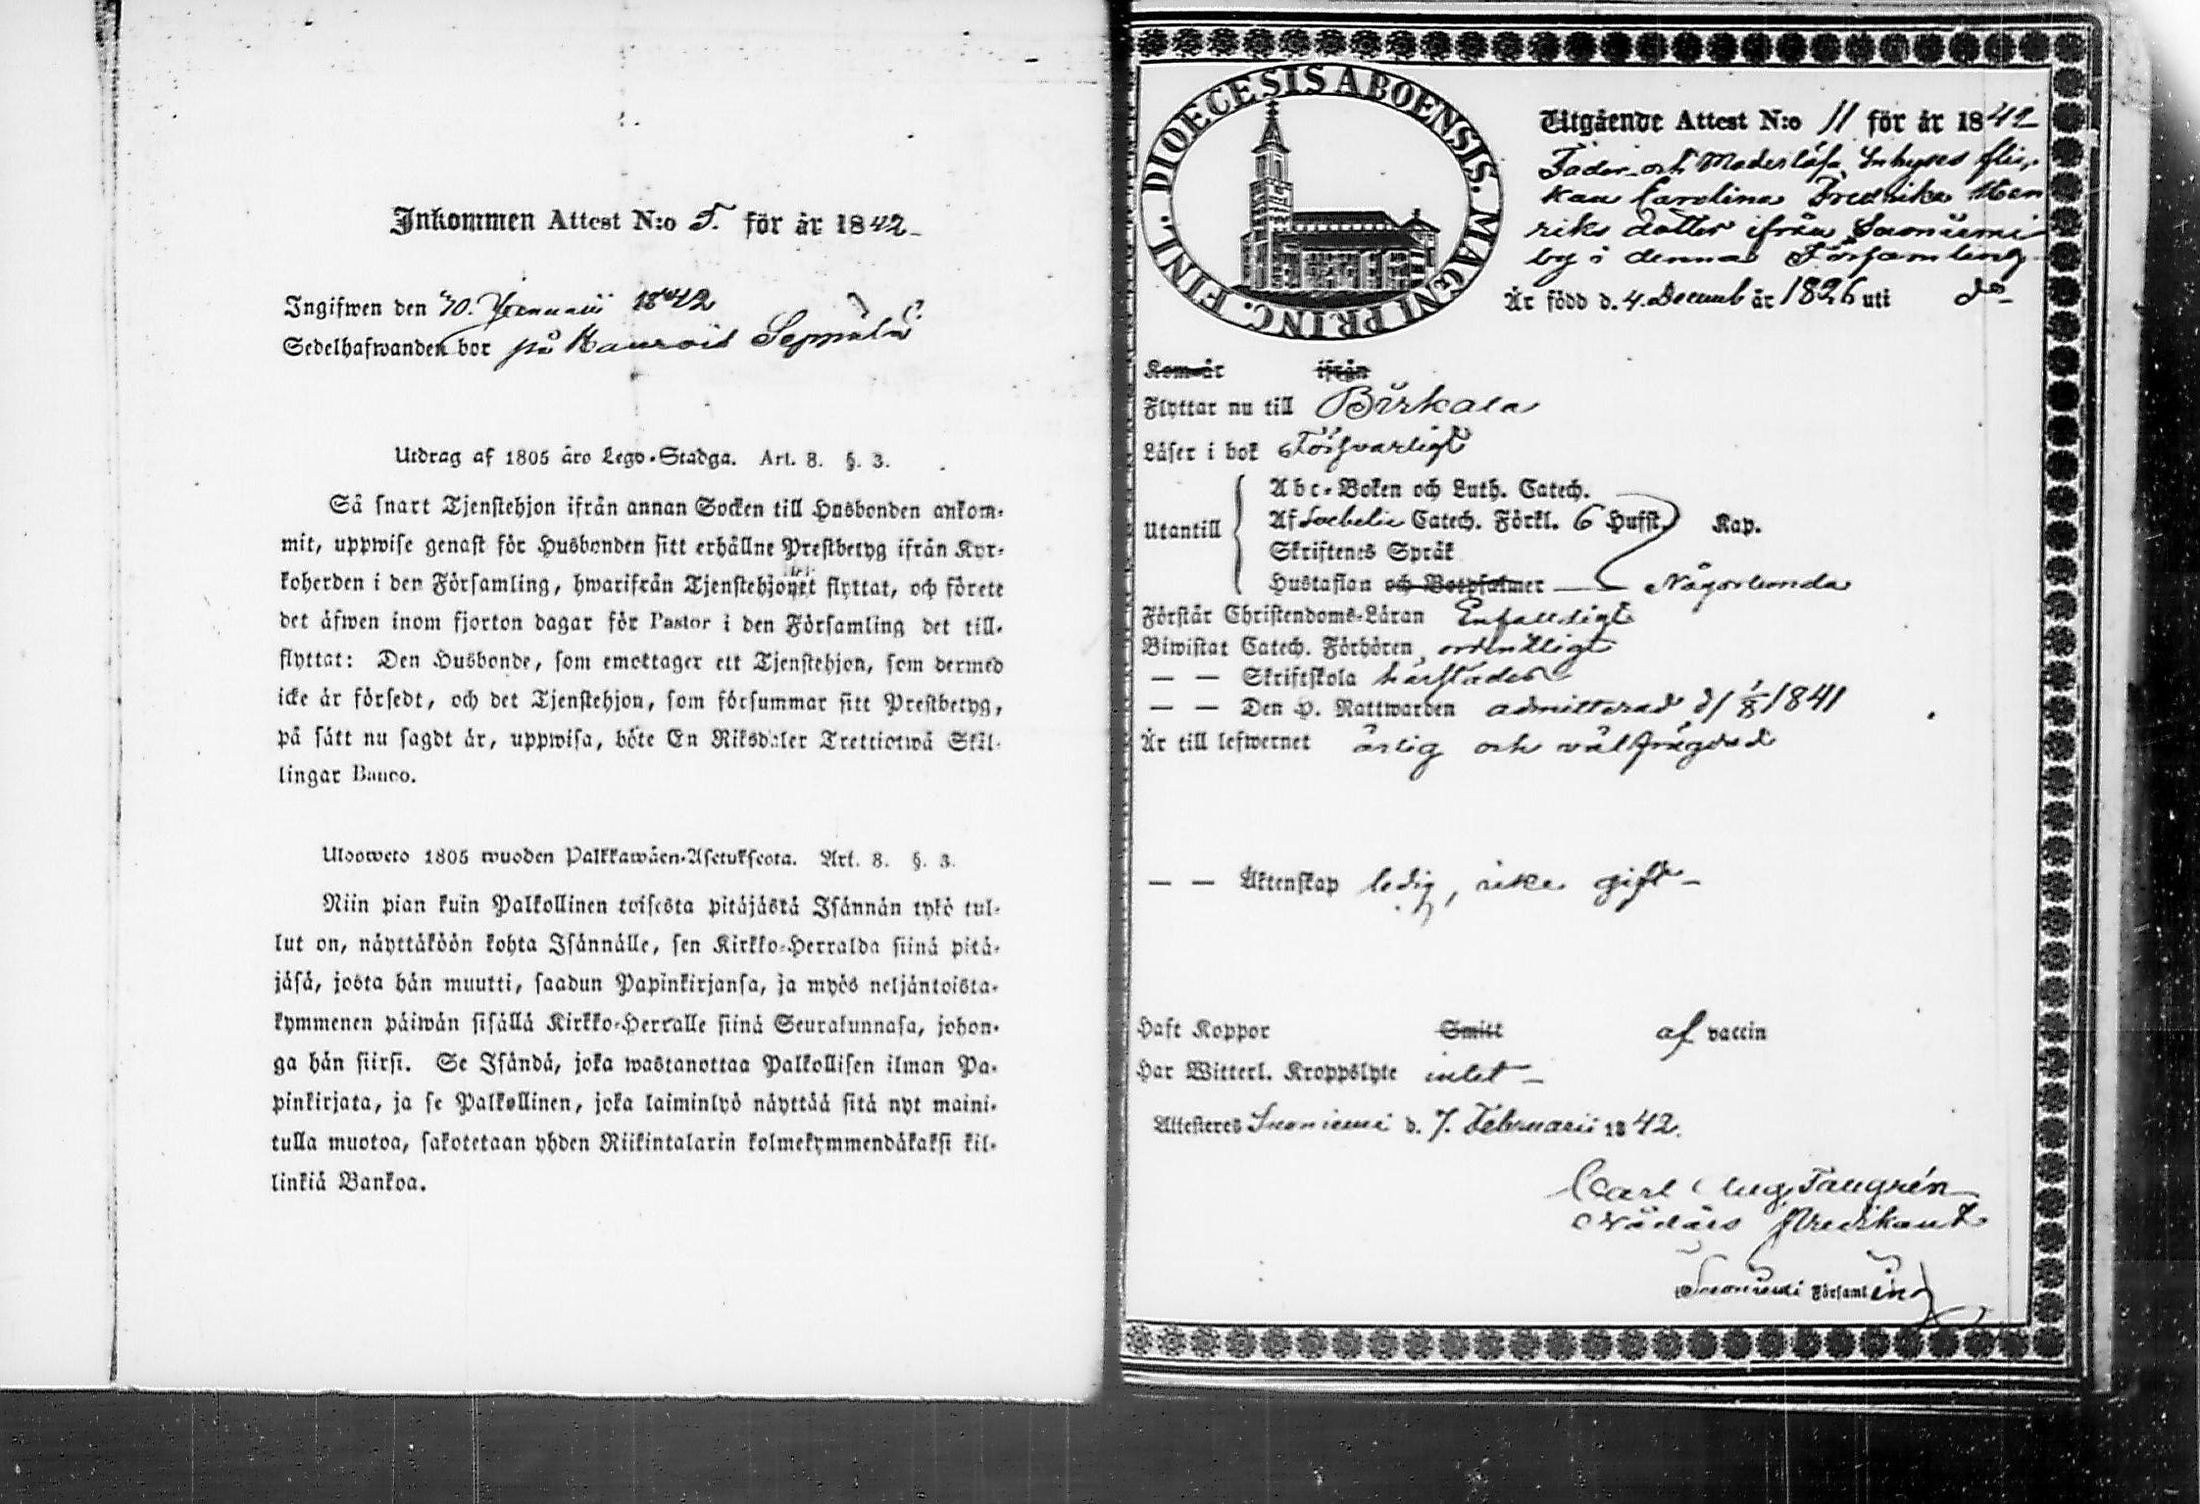 Inkommen Attest N:o 5. för år 1842
Ingifwen den 30. Januarii 1842
Sedelhafwanden bor på Seppälä
Utdrag af 1805 års Lego-Stadga. Art. 8. §. 3.
Så snart Tjenstehjon ifrån annan Socken till Husbonden ankom-
mit, uppwise genast för Husbonden sitt erhållne Prestbetyg ifrån Kyr-
koherden i den Församling, hwarifrån Tjenstehjonet flyttat, och förete
det äfwen inom fjorton dagar för Pastor i den Församling det till-
flyttat: Den Husbonde, som emottager ett Tjenstehjon, som dermed
icke är försedt, och det Tjenstehjon, som försummar sitt Prestbetyg,
på sätt nu sagdt är, uppwisa, böte En Riksdaler Trettiotwå Skil-
lingar Banco.
Uloswets 1805 wuoden Palkkawäen-Asetuksesta. Art. 8. §. 3.
Niin pian kuin Palkollinen toisesta pitäjästä Isännän tykö tul-
lut on, näyttäköön kohta Isännälle, sen Kirkko-Herralda siinä pitä-
jäsä, josta hän muutti, saadun Papinkirjansa, ja myös neljäntoista-
kymmenen päiwän sisällä Kirkko-Herralle siinä Seurakunnasa, johon-
ga hän siirsi. Se Isändä, joka wastanottaa Palkollisen ilman Pa-
pinkirjata, ja se Palkollinen, joka laiminlyö näyttää sitä nyt maini-
tulla muotoa, sakotetaan yhden Riikintalarin kolmekymmendäkaksi kil-
linkiä Bankoa.
DIOECESIS ABOENSIS. MAGNI PRINC. FINL.
Utgående Attest N:o 11 för år 1842
Fader och Moderlösa Inhyses flic-
kan Carolina Fredrika Hen
riks dotter ifrån Suoniemi
by i denna Församling
Är född d. 4. Decemb år 1826 uti do
Kom år ifrån
Flyttar nu till Birkala
Läser i bok Försvarligt
Utantill
Abc-Boken och Luth. Catech.
Af Soebelii Catech. Förkl. 6 Hufst. Kap.
Skriftenes Språk
Hustaflan och Botpsalmer Någorlunda
Förstår Christendoms-Läran Enfaldigt
Biwistat Catech. Förhören ordentligt
— — Skriftskola härstädes
— — Den H. Nattwarden admitterad d. 1/8 1841
Är till lefwernet ärlig och välfrägdad
— — Äktenskap ledig, icke gift
Haft Koppor Smitt af vaccin
Har Witterl. Kroppslyte intet
Attesteres Suoniemi d. 7. Februarii 1842.
Carl Aug. Tangrén
Nådårs Predikant
Suoniemi Församling